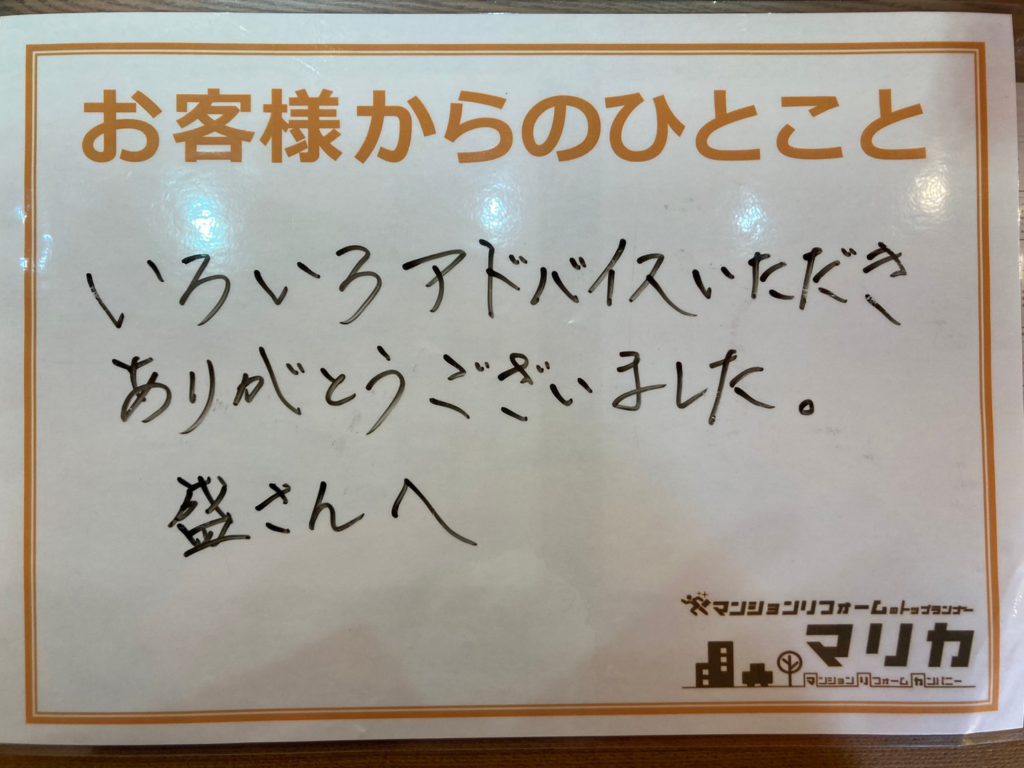 お客様からのひとこと
いろいろアドバイスいただき
ありがとうございました。
盛さんへ
マンションリフォームのトップランナー
マリカ
マンションリフォームカンパニー